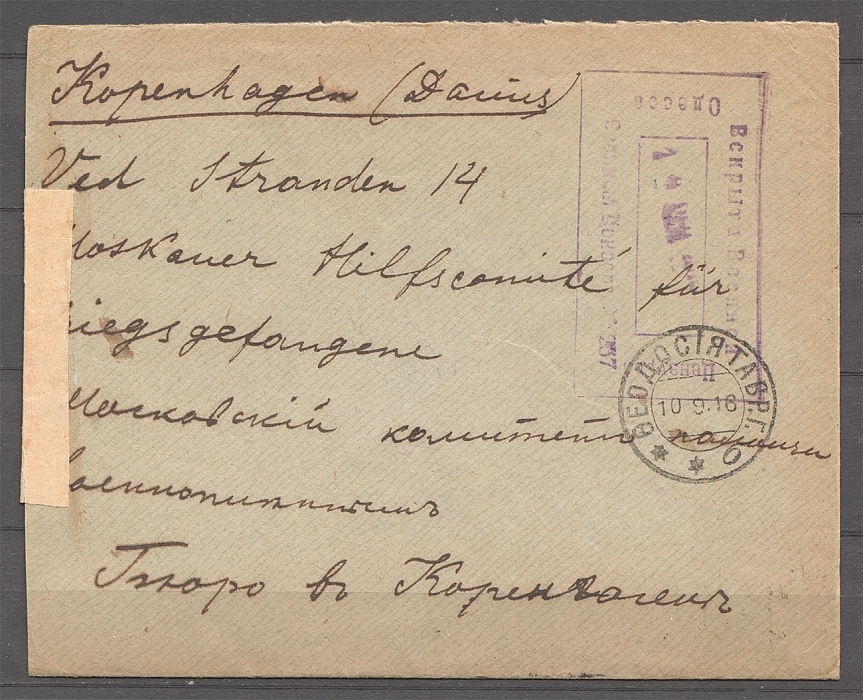 Kopenhagen (Danus)
Ved Stranden 14
Moskauer Hilfscomité für
Kriegsgefangene
Московскій комитетъ помощи
военноплѣннымъ
Бюро въ Копенгагенѣ
Вскрыта Военной
Цензурой
Одесса
257
ѲЕОДОСІЯ ТАВР. Г.
10 9.16